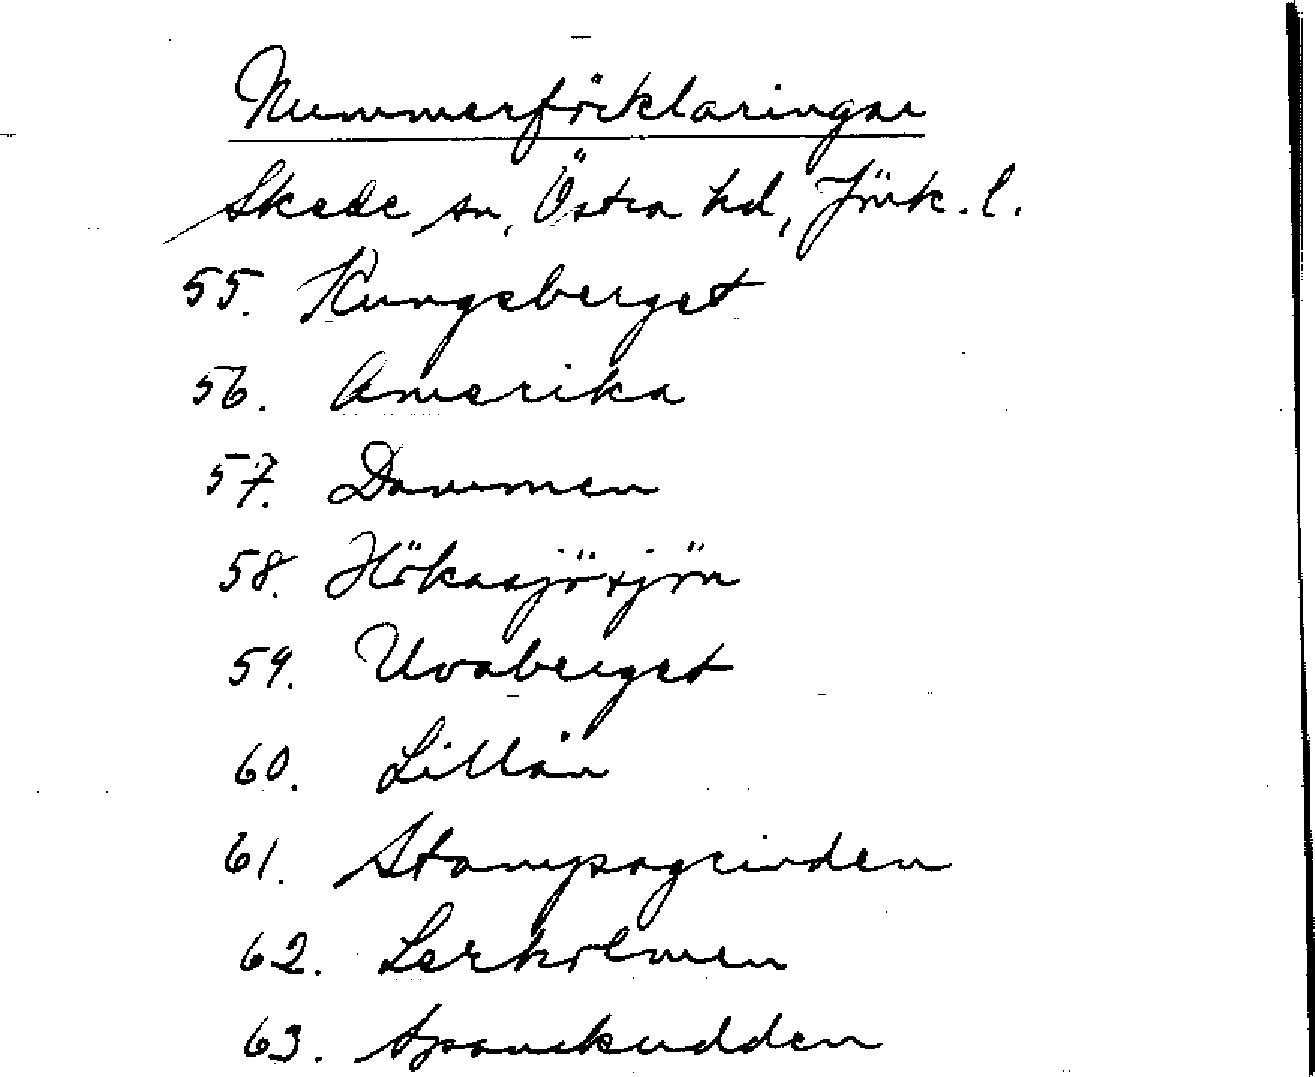 Nummerförklaringar
Skede sn, Östra hd, Jönk. l.
55. Kungsberget
56. Amerika
57. Dammen
58. Hökasjösjön
59. Uvaberget
60. Lillån
61. Stampagrinden
62. Lerholmen
63. Spanskudden